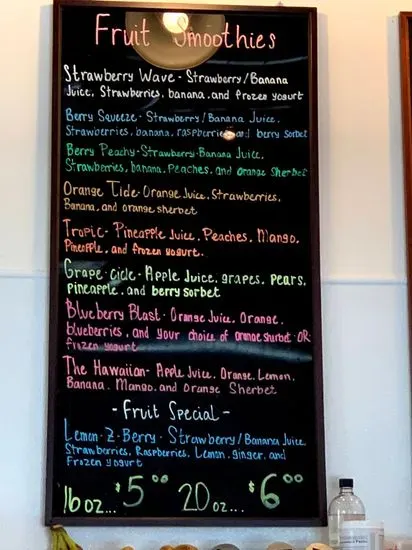 Fruit Smoothies
Strawberry Wave - Strawberry/Banana
Juice, Strawberries, banana, and frozen yogurt
Berry Squeeze - Strawberry/Banana Juice,
Strawberries, banana, raspberries and berry sorbet
Berry Peachy - Strawberry-Banana Juice,
Strawberries, banana, Peaches, and orange Sherbet
Orange Tide - Orange Juice, Strawberries,
Banana, and orange sherbet
Tropic - Pineapple Juice, Peaches, Mango,
Pineapple, and frozen yogurt.
Grape-cicle - Apple Juice, grapes, pears,
pineapple, and berry sorbet
Blueberry Blast - Orange Juice, Orange,
blueberries, and your choice of orange sherbet OR
frozen yogurt
The Hawaiian - Apple Juice, Orange, Lemon,
Banana, Mango, and Orange Sherbet
- Fruit Special -
Lemon-Z-Berry - Strawberry/Banana Juice,
Strawberries, Raspberries, Lemon, ginger, and
Frozen yogurt
16 oz... $5.00 20 oz... $6.00